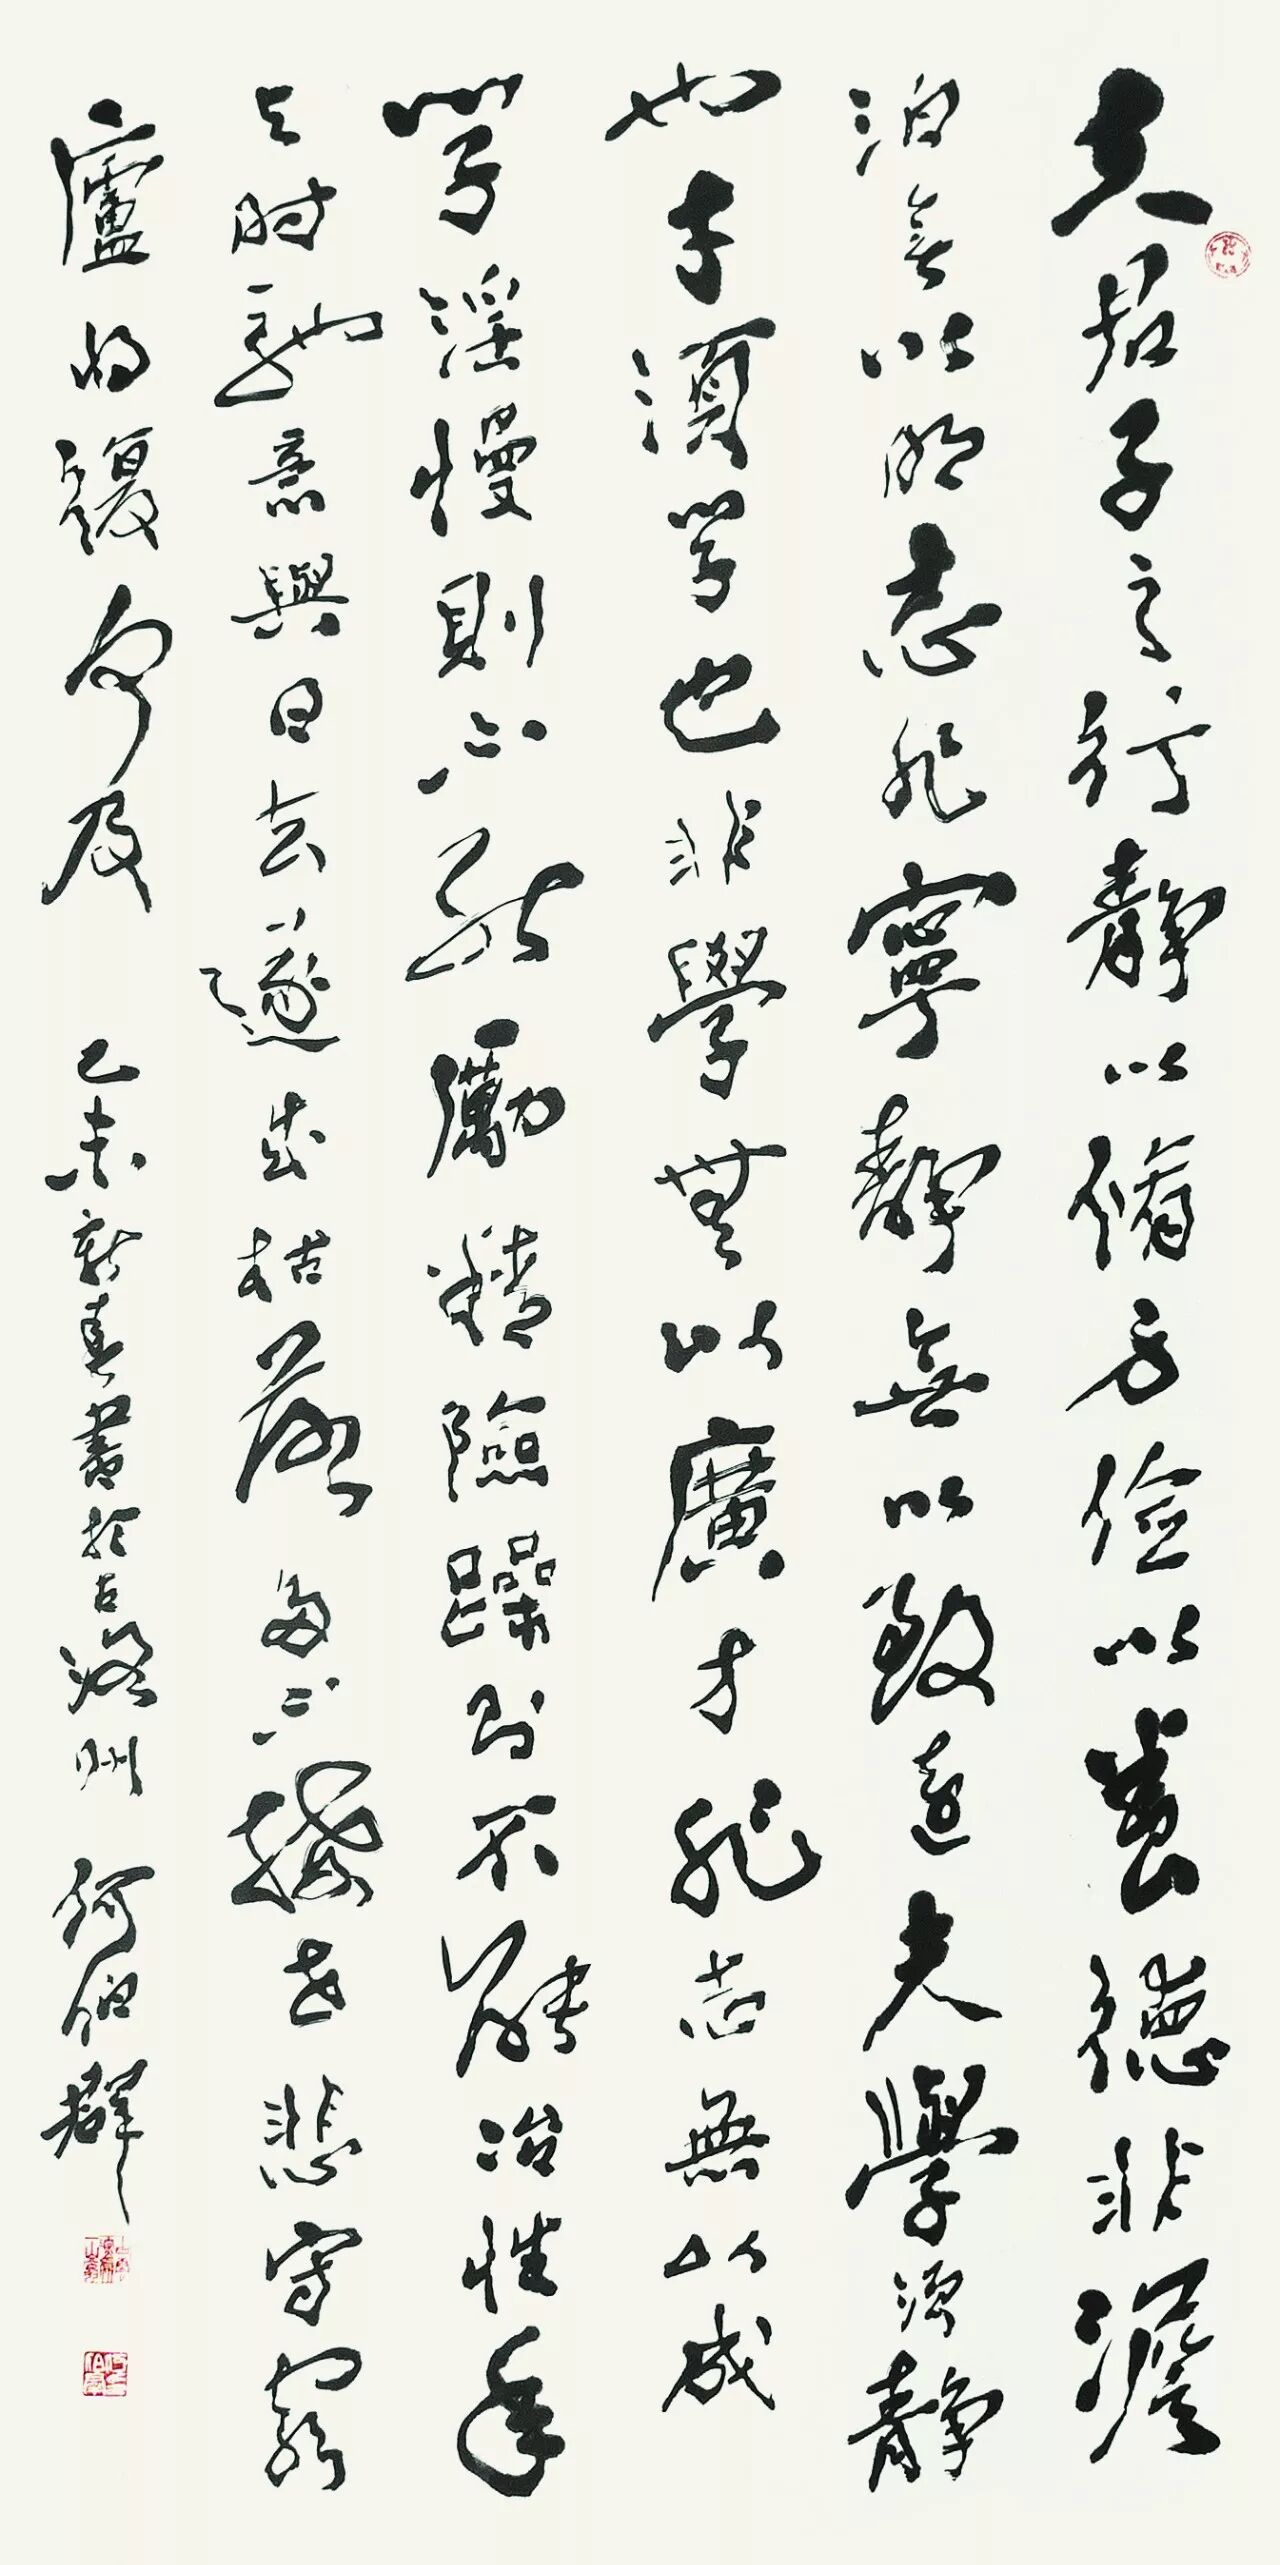 夫君子之行靜以脩身儉以養德非澹
泊無以明志非寧靜無以致遠夫學須靜
也才須學也非學無以廣才非志無以成
學淫慢則不能勵精險躁則不能冶性年
與時馳意與日去遂成枯落多不接世悲守窮
廬將復何及
乙未新春書於古潞州 何伯群